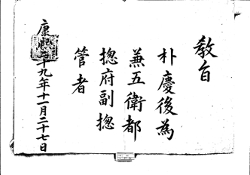 敎旨
朴慶後為
兼五衛都
揔府副揔
管者
康熙十九年十一月二十七日